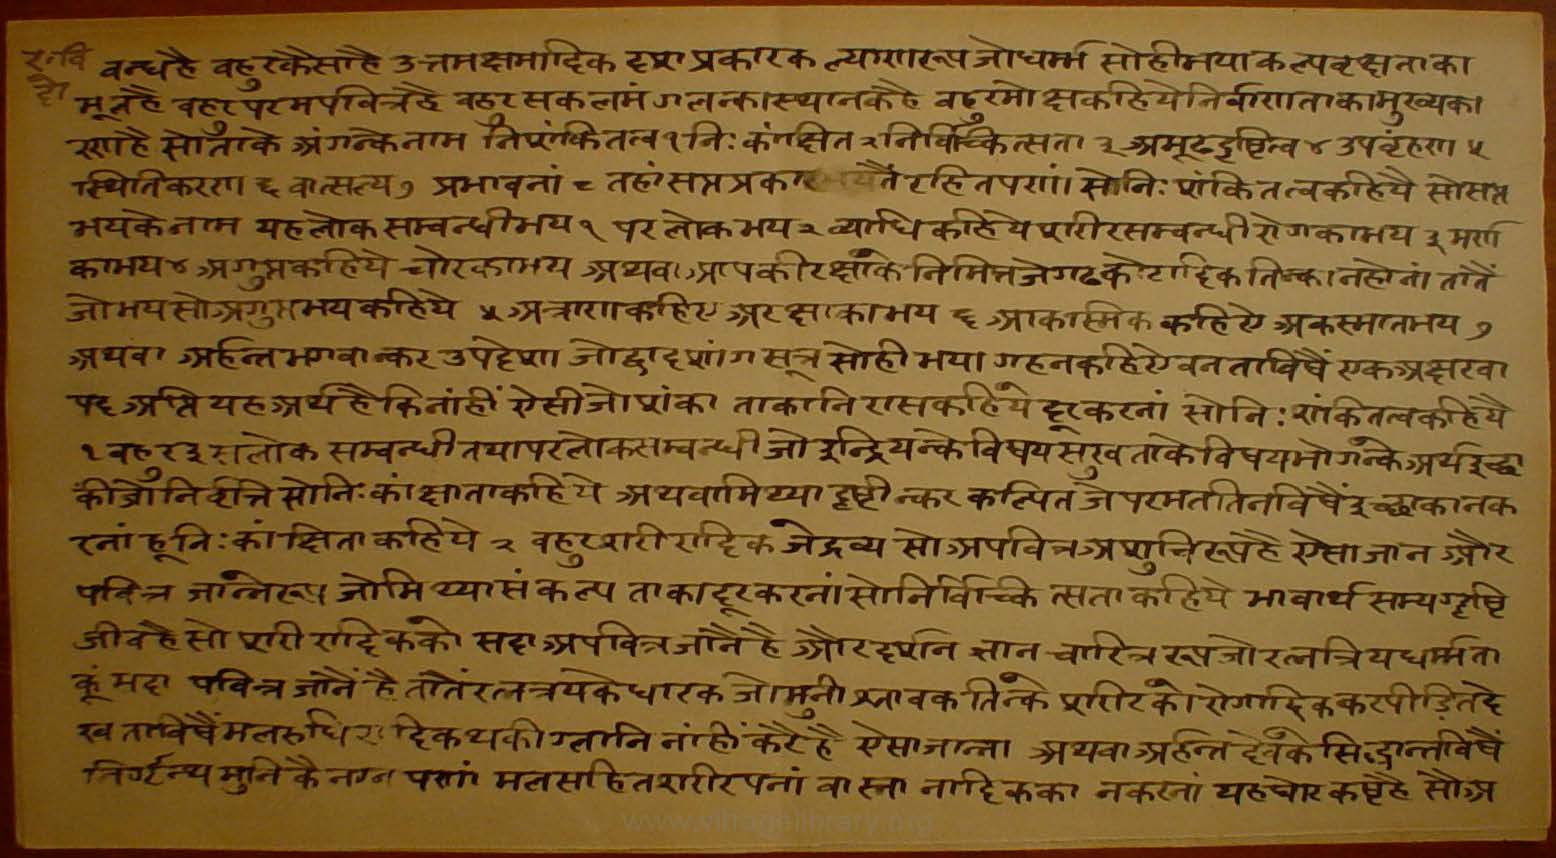 वन्धहै वहुरकैसाहै उत्तमक्षमादिक दशप्रकारक ल्याणरूप जोधर्म्म सोहीभयाकल्पवृक्षताका
मूलहै वहुरपरमपवित्रहै वहुरसकलमंगलन्कास्थानकहै वहुरमोक्षकहियेनिर्वाणताकामुख्यका
रणहै सोताके अंगन्केनाम निशंकितत्व१निःकांक्षित२निर्विचिकित्सता ३ अमूढदृष्टित्व ४ उपवृंहण ५
स्थितिकरण ६ वात्सल्य ७ प्रभावनां ८ तहांसप्तप्रकार भयतैंरहितपणां। सोनिःशंकितत्वकहियै सोसप्त
भयकेनाम यहलोकसम्बन्धीभय १ परलोकभय २ व्याधिकहियेशरीरसम्बन्धीरोगकाभय ३ मर्ण
काभय४ अगुप्तकहिये चोरकाभय अथवा आपकीरक्षाके निमित्तजेगढकोटादिकतिन्कानहोनां तातैं
जोभयसोअगुप्तभयकहिये ५ अत्राणकहिए अरक्षाकाभय ६ आकास्मिक कहिऐ अकस्मातभय ७
अथवा अर्हन्तभगवान्कर उपदेश जोद्वादशांगसूत्र सोहीभया गहनकहिऐवनताविषैं एकअक्षरवा
पद अप्ति यहअर्थहैकिनांहीं ऐसीजोशंका ताकानिरासकहिये दूरकरनां सोनिःशंकितत्वकहियै
१ वहुरइसलोक सम्बन्धीतथापरलोकसम्बन्धी जोइन्द्रियन्केविषयसुखताकेविषयभोगन्केअर्थइच्छा
कीजोनिर्वृत्ति सोनिःकांक्षाताकहिये अथवामिथ्यादृष्टीन्कर कल्पितजेपरमततिनविषैंइच्छाकानक
रनांहूनिःकांक्षिताकहिये २ वहुरशरीरादिक जेद्रव्य सोअपवित्रअशुचिरूपहै ऐसाजान और
पवित्र जान्नेरूप जोमिथ्यासंकल्प ताकादूरकरनांसोनिर्विचिकित्सताकहिये भावार्थ सम्यग्दृष्टि
जीवहैसोशरीरादिकको सदाअपवित्रजांनैंहै औरदर्शन ज्ञान चारित्र रूपजोरत्नत्रियधर्म्मता
कूं सदा पवित्र जांनैंहै तातैंरत्नत्रयकेधारक जोमुनीश्रावकतिन्के शरीरकोरोगादिककरपीड़ितदे
खताविषैंमलरुधिरादिकथकीग्लानिनांहींकरैहै ऐसाजान्ना अथवाअर्हन्तदेवकेसिद्धान्तविषैं
निर्ग्रन्थमुनिकैनग्नपणां मलसहितशरीरपनां वास्नानादिकका नकरनां यहघोरकष्टहै सौअ